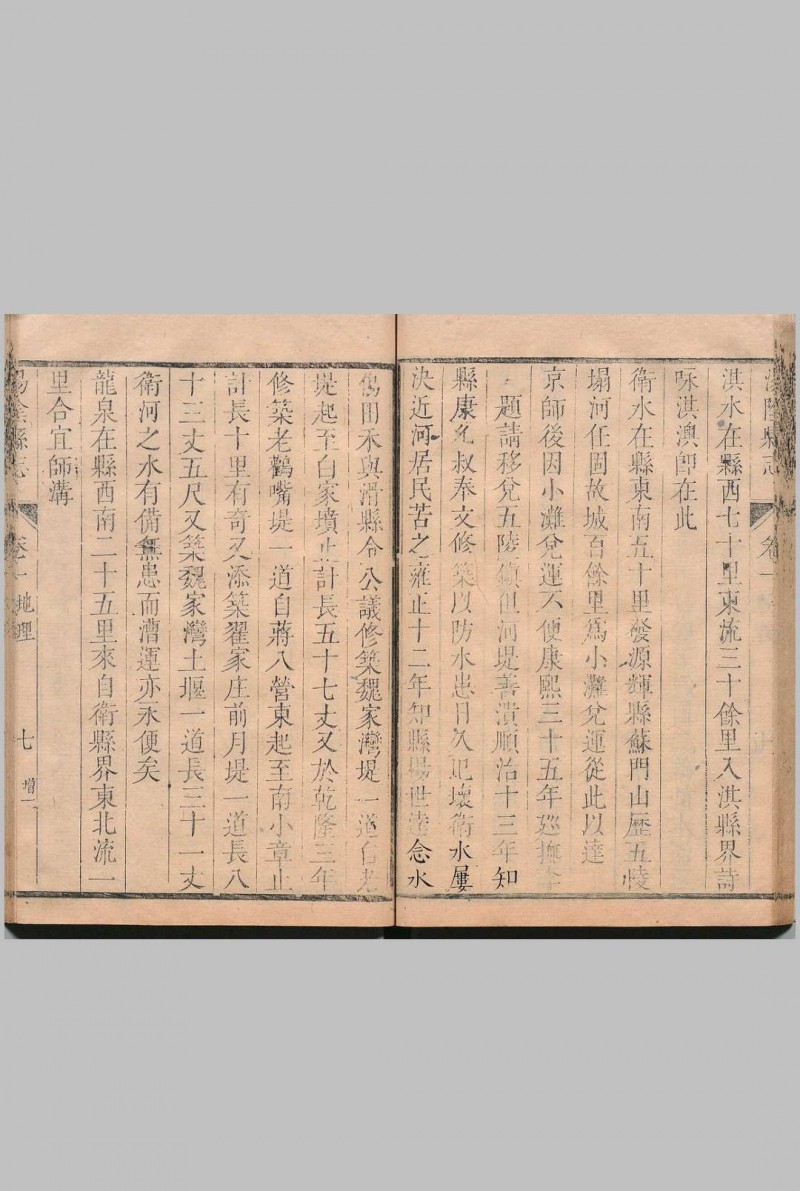 湯陰縣志 卷一
淇水在縣西七十里東流三十餘里入淇縣界詩
咏淇澳即在此
衛水在縣東南五十里發源輝縣蘇門山歷五陵
塌河任固故城百餘里爲小灘兌運從此以達
京師後因小灘兌運不便康熙三十五年巡撫李
題請移兌五陵鎮但河堤善潰順治十三年知
縣康九叔奉文修築以防水患日久圮壞衛水屢
決近河居民苦之雍正十二年知縣楊世達念水
傷田禾與滑縣令公議修築魏家灣堤一道自老
堤起至白家墳止計長五十七丈又於乾隆三年
修築老鸛嘴堤一道自蔣八營東起至南小章止
計長十里有奇又添築翟家庄前月堤一道長八
十三丈五尺又築魏家灣土堰一道長三十一丈
衛河之水有備無患而漕運亦永便矣
龍泉在縣西南二十五里來自衛縣界東北流一
里合宜師溝
湯陰縣志 卷一 地理 七 增一